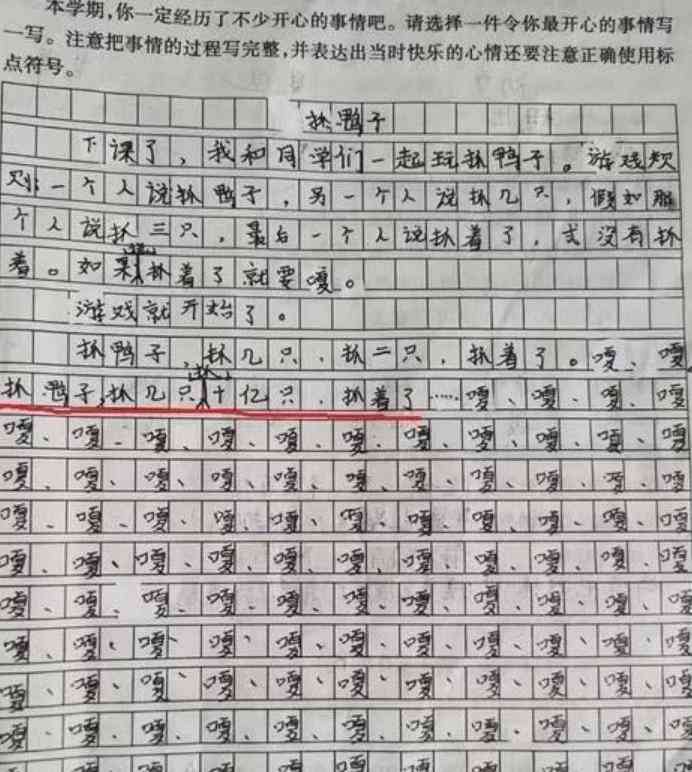 本学期,你一定经历了不少开心的事情吧。请选择一件令你最开心的事情写
一写。注意把事情的过程写完整,并表达出当时快乐的心情还要注意正确使用标
点符号。
抓鸭子
下课了，我和同学们一起玩抓鸭子。游戏规
则：一个人说抓鸭子，另一个人说抓几只，假如那
个人说抓三只，最后一个人说抓着了，或没有抓
着。如果抓着了就要嘎。
游戏就开始了。
抓鸭子，抓几只，抓二只，抓着了。嘎、嘎
抓鸭子,抓几只，抓十亿只，抓着了……嘎、嘎、嘎、嘎
嘎、嘎、嘎、嘎、嘎、嘎、嘎、嘎、嘎、嘎、嘎
嘎、嘎、嘎、嘎、嘎、嘎、嘎、嘎、嘎、嘎、嘎
嘎、嘎、嘎、嘎、嘎、嘎、嘎、嘎、嘎、嘎、嘎
嘎、嘎、嘎、嘎、嘎、嘎、嘎、嘎、嘎、嘎、嘎
嘎、嘎、嘎、嘎、嘎、嘎、嘎、嘎、嘎、嘎、嘎
嘎、嘎、嘎、嘎、嘎、嘎、嘎、嘎、嘎、嘎、嘎
嘎、嘎、嘎、嘎、嘎、嘎、嘎、嘎、嘎、嘎、嘎
嘎、嘎、嘎、嘎、嘎、嘎、嘎、嘎、嘎、嘎、嘎